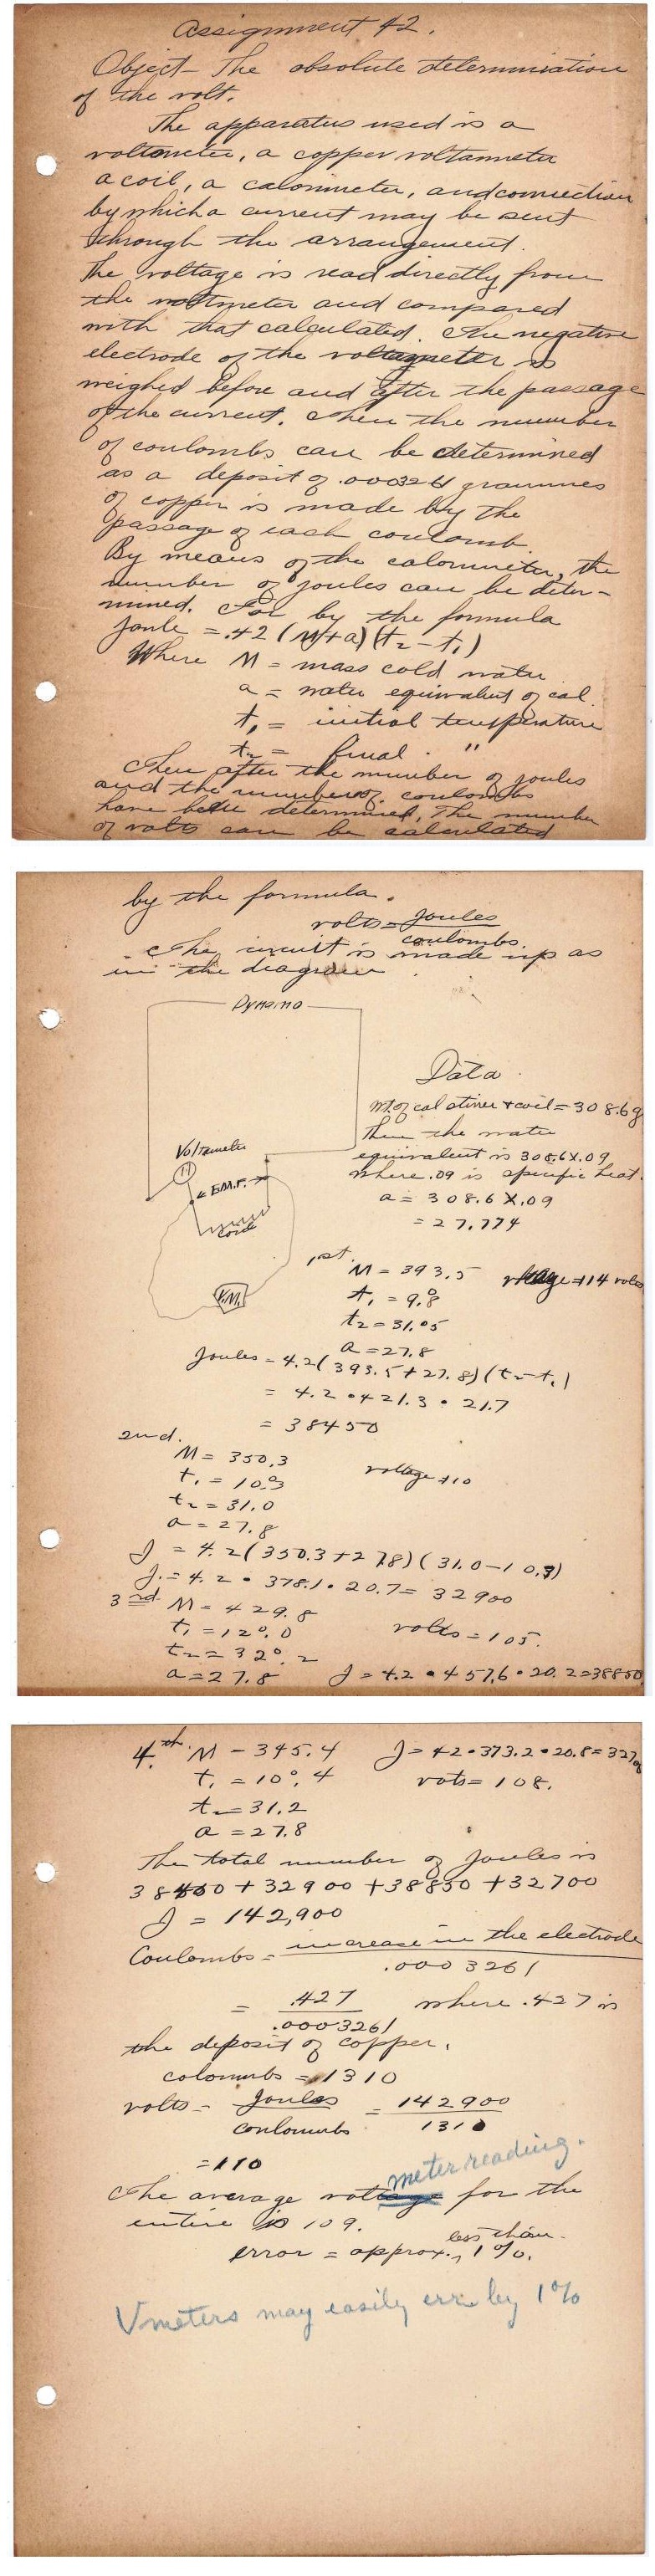 Assignment 42.
Object - The absolute determination
of the volt.
The apparatus used is a
voltmeter, a copper voltameter
a coil, a calorimeter, and connection
by which a current may be sent
through the arrangement.
The voltage is read directly from
the voltmeter and compared
with that calculated. The negative
electrode of the voltameter is
weighed before and after the passage
of the current. Then the number
of coulombs can be determined
as a deposit of .0003261 grammes
of copper is made by the
passage of each coulomb.
By means of the calorimeter, the
number of joules can be deter-
mined. For by the formula
Joule = .42 (M+a)(t₂-t₁)
Where M = mass cold water
a = water equivalent of cal.
t₁ = initial temperature
t₂ = final "
Then after the number of joules
and the number of coulombs
have been determined, The number
of volts can be calculated
by the formula.
volts = Joules
coulombs.
The circuit is made up as
in the diagram
Dynamo
Data
wt. of cal stirrer + coil = 308.6g
Then the water
equivalent is 308.6X.09
where .09 is specific heat.
a = 308.6 X.09
= 27.774
Voltameter
E.M.F.
coil
V.M.
1st.
M = 393.5
t₁ = 9.8
t₂ = 31.05
a = 27.8
Joules = 4.2(393.5+27.8)(t₂-t₁)
= 4.2 • 421.3 • 21.7
= 38450
2nd.
M = 350.3
t₁ = 10.3
t₂ = 31.0
a = 27.8
J = 4.2(350.3+27.8)(31.0-10.3)
J. = 4.2 • 378.1 • 20.7 = 32900
3rd M = 429.8
t₁ = 12°.0
volts = 105.
t₂ = 32°.2
a = 27.8 J = 4.2 • 457.6 • 20.2 = 38850
4.th M - 345.4 J = 42•373.2•20.8 = 32700
t₁ = 10°.4
vots = 108.
t₂ = 31.2
a = 27.8
The total number of Joules is
38450 + 32900 + 38850 + 32700
J = 142,900
Coulombs = increase in the electrode
.0003261
= .427 where .427 is
.0003261
the deposit of copper.
colomubs = 1310
volts - Joules = 142900
coulombs 1310
= 110
meter reading.
The average voltage for the
entire is 109.
less than
error = approx. 1%.
Vmeters may easily err by 1%